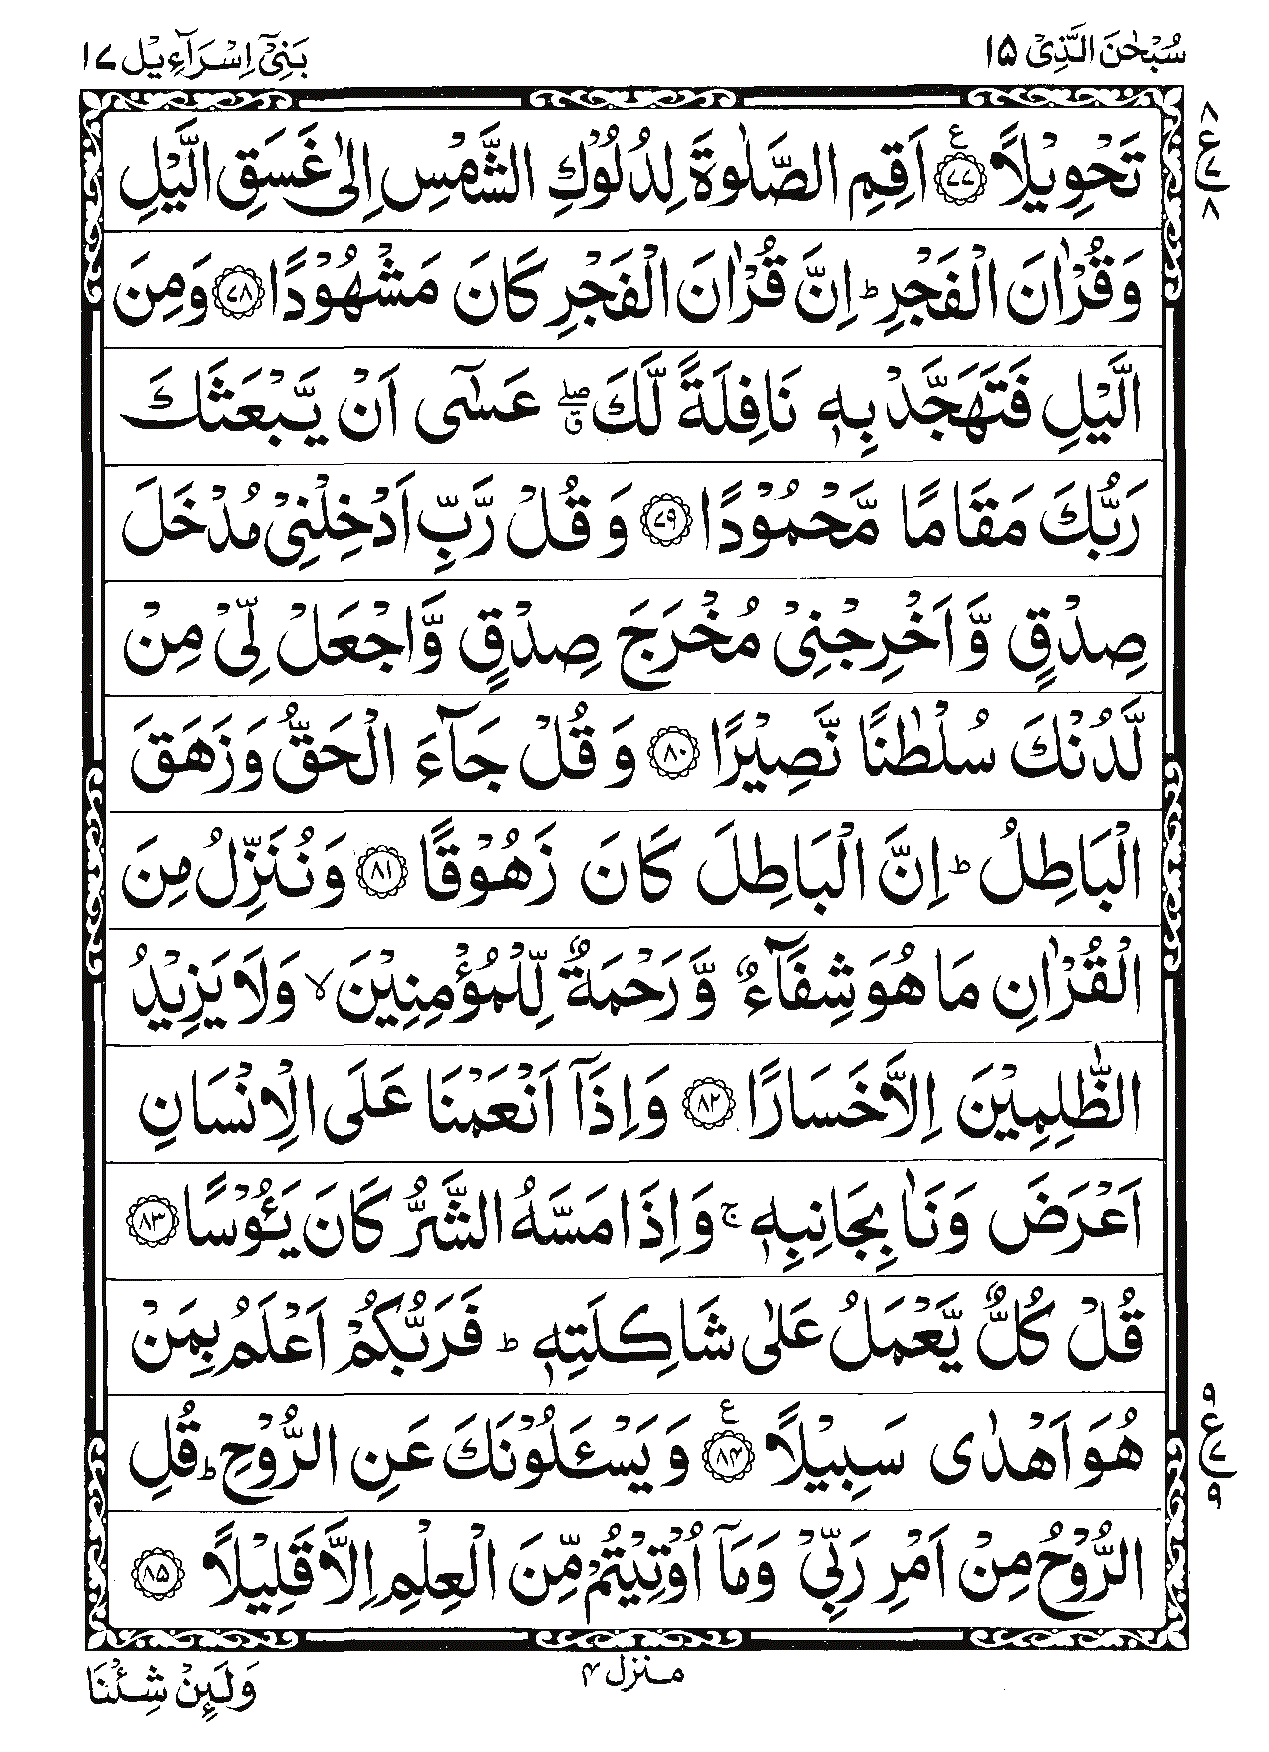 سُبْحٰنَ الَّذِیْۤ ۱۵
بَنِیْۤ اِسْرَآءِیْل ۱۷
تَحْوِیْلًا ﴿۷۷﴾ ع اَقِمِ الصَّلٰوةَ لِدُلُوْكِ الشَّمْسِ اِلٰی غَسَقِ الَّیْلِ
۸
ع
۷
۸
وَ قُرْاٰنَ الْفَجْرِ ؕ اِنَّ قُرْاٰنَ الْفَجْرِ كَانَ مَشْهُوْدًا ﴿۷۸﴾ وَ مِنَ
الَّیْلِ فَتَهَجَّدْ بِهٖ نَافِلَةً لَّكَ ۖۗ عَسٰۤی اَنْ یَّبْعَثَكَ
رَبُّكَ مَقَامًا مَّحْمُوْدًا ﴿۷۹﴾ وَ قُلْ رَّبِّ اَدْخِلْنِیْ مُدْخَلَ
صِدْقٍ وَّ اَخْرِجْنِیْ مُخْرَجَ صِدْقٍ وَّ اجْعَلْ لِّیْ مِنْ
لَّدُنْكَ سُلْطٰنًا نَّصِیْرًا ﴿۸۰﴾ وَ قُلْ جَآءَ الْحَقُّ وَ زَهَقَ
الْبَاطِلُ ؕ اِنَّ الْبَاطِلَ كَانَ زَهُوْقًا ﴿۸۱﴾ وَ نُنَزِّلُ مِنَ
الْقُرْاٰنِ مَا هُوَ شِفَآءٌ وَّ رَحْمَةٌ لِّلْمُؤْمِنِیْنَ ۙ وَ لَا یَزِیْدُ
الظّٰلِمِیْنَ اِلَّا خَسَارًا ﴿۸۲﴾ وَ اِذَاۤ اَنْعَمْنَا عَلَی الْاِنْسَانِ
اَعْرَضَ وَ نَاٰ بِجَانِبِهٖ ۚ وَ اِذَا مَسَّهُ الشَّرُّ كَانَ یَـُٔوْسًا ﴿۸۳﴾
قُلْ كُلٌّ یَّعْمَلُ عَلٰی شَاكِلَتِهٖ ؕ فَرَبُّكُمْ اَعْلَمُ بِمَنْ
هُوَ اَهْدٰی سَبِیْلًا ﴿۸۴﴾ ع وَ یَسْـَٔلُوْنَكَ عَنِ الرُّوْحِ ؕ قُلِ
۹
ع
۷
۹
الرُّوْحُ مِنْ اَمْرِ رَبِّیْ وَ مَاۤ اُوْتِیْتُمْ مِّنَ الْعِلْمِ اِلَّا قَلِیْلًا ﴿۸۵﴾
منزل ۴
وَلَئِنْ شِئْنَا